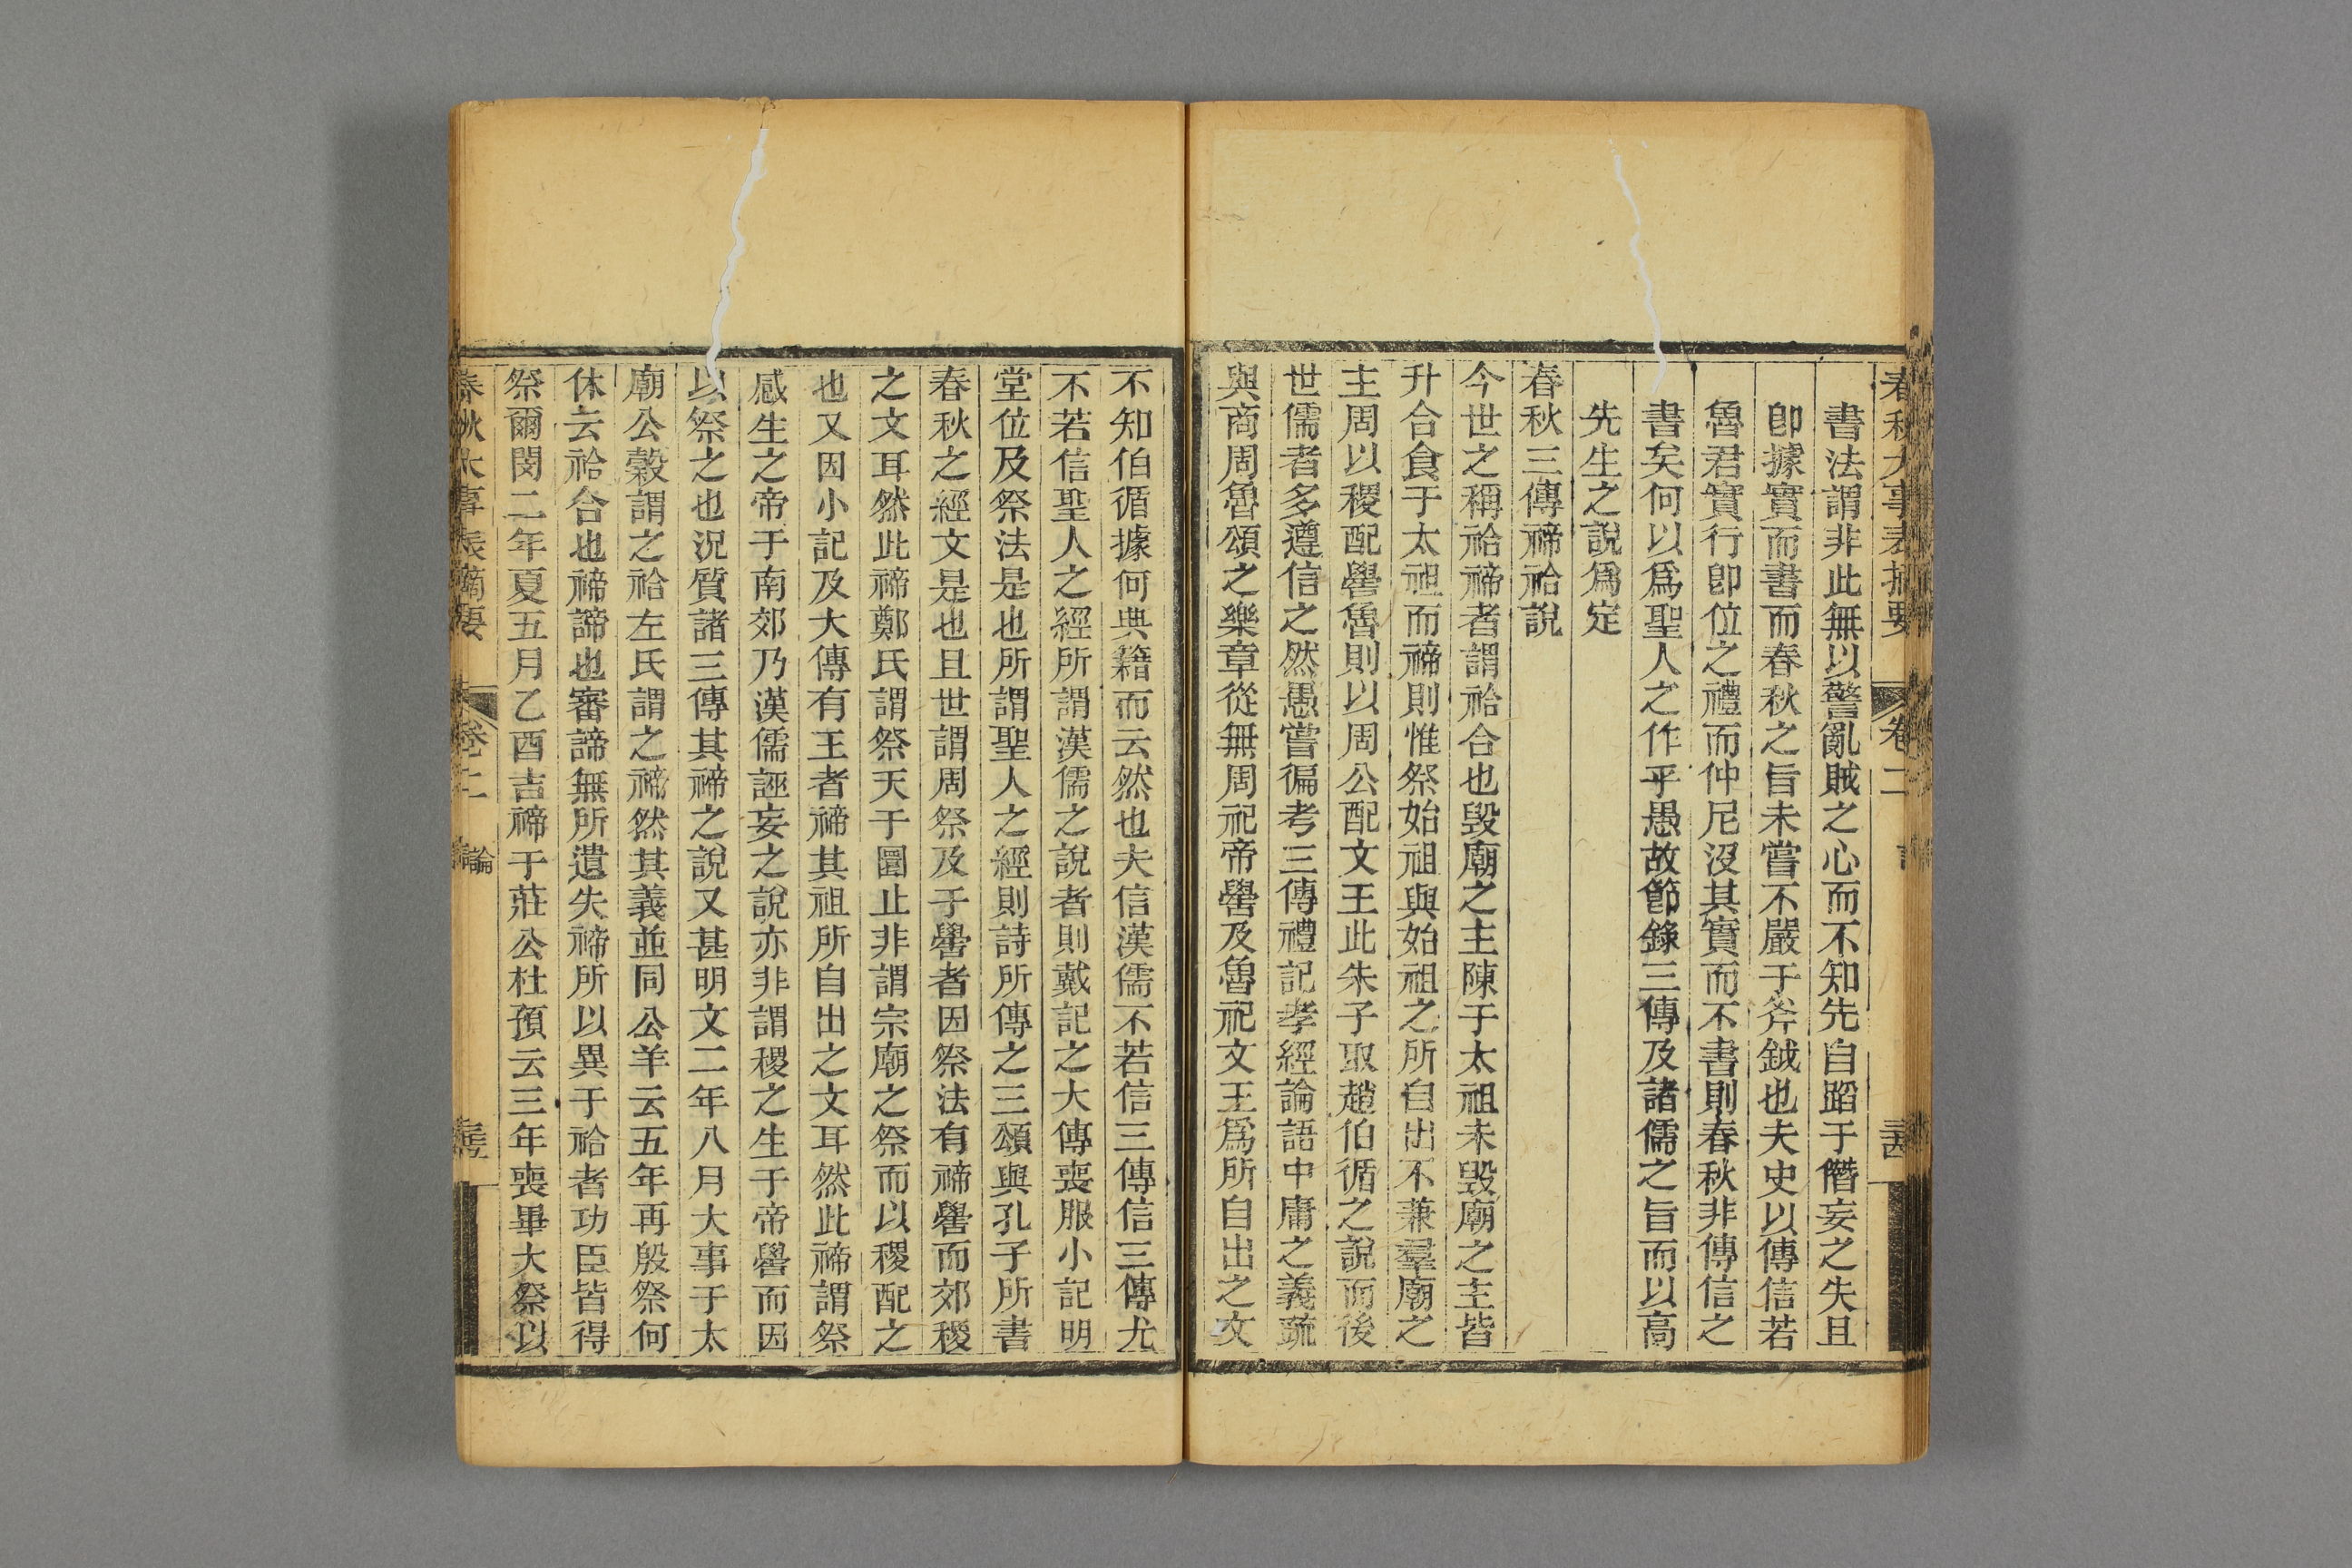 春秋大事表摘要 卷二 論
書法謂非此無以警亂賊之心而不知先自蹈于僭妄之失且
卽據實而書而春秋之旨未嘗不嚴于斧鉞也夫史以傳信若
魯君實行卽位之禮而仲尼沒其實而不書則春秋非傳信之
書矣何以爲聖人之作乎愚故節錄三傳及諸儒之旨而以高
先生之說爲定
春秋三傳禘祫說
今世之稱祫禘者謂祫合也毁廟之主陳于太祖未毁廟之主皆
升合食于太祖而禘則惟祭始祖與始祖之所自出不兼羣廟之
主周以稷配嚳魯則以周公配文王此朱子取趙伯循之說而後
世儒者多遵信之然愚嘗徧考三傳禮記孝經論語中庸之義疏
與商周魯頌之樂章從無周祀帝嚳及魯祀文王爲所自出之文
不知伯循據何典籍而云然也夫信漢儒不若信三傳信三傳尤
不若信聖人之經所謂漢儒之說者則戴記之大傳喪服小記明
堂位及祭法是也所謂聖人之經則詩所傳之三頌與孔子所書
春秋之經文是也且世謂周祭及于嚳者因祭法有禘嚳而郊稷
之文耳然此禘鄭氏謂祭天于圜止非謂宗廟之祭而以稷配之
也又因小記及大傳有王者禘其祖所自出之文耳然此禘謂祭
感生之帝于南郊乃漢儒誣妄之說亦非謂稷之生于帝嚳而因
以祭之也況質諸三傳其禘之說又甚明文二年八月大事于太
廟公穀謂之祫左氏謂之禘然其義並同公羊云五年再殷祭何
休云祫合也禘諦也審諦無所遺失禘所以異于祫者功臣皆得
祭爾閔二年夏五月乙酉吉禘于莊公杜預云三年喪畢大祭以
春秋大事表摘要 卷二 論